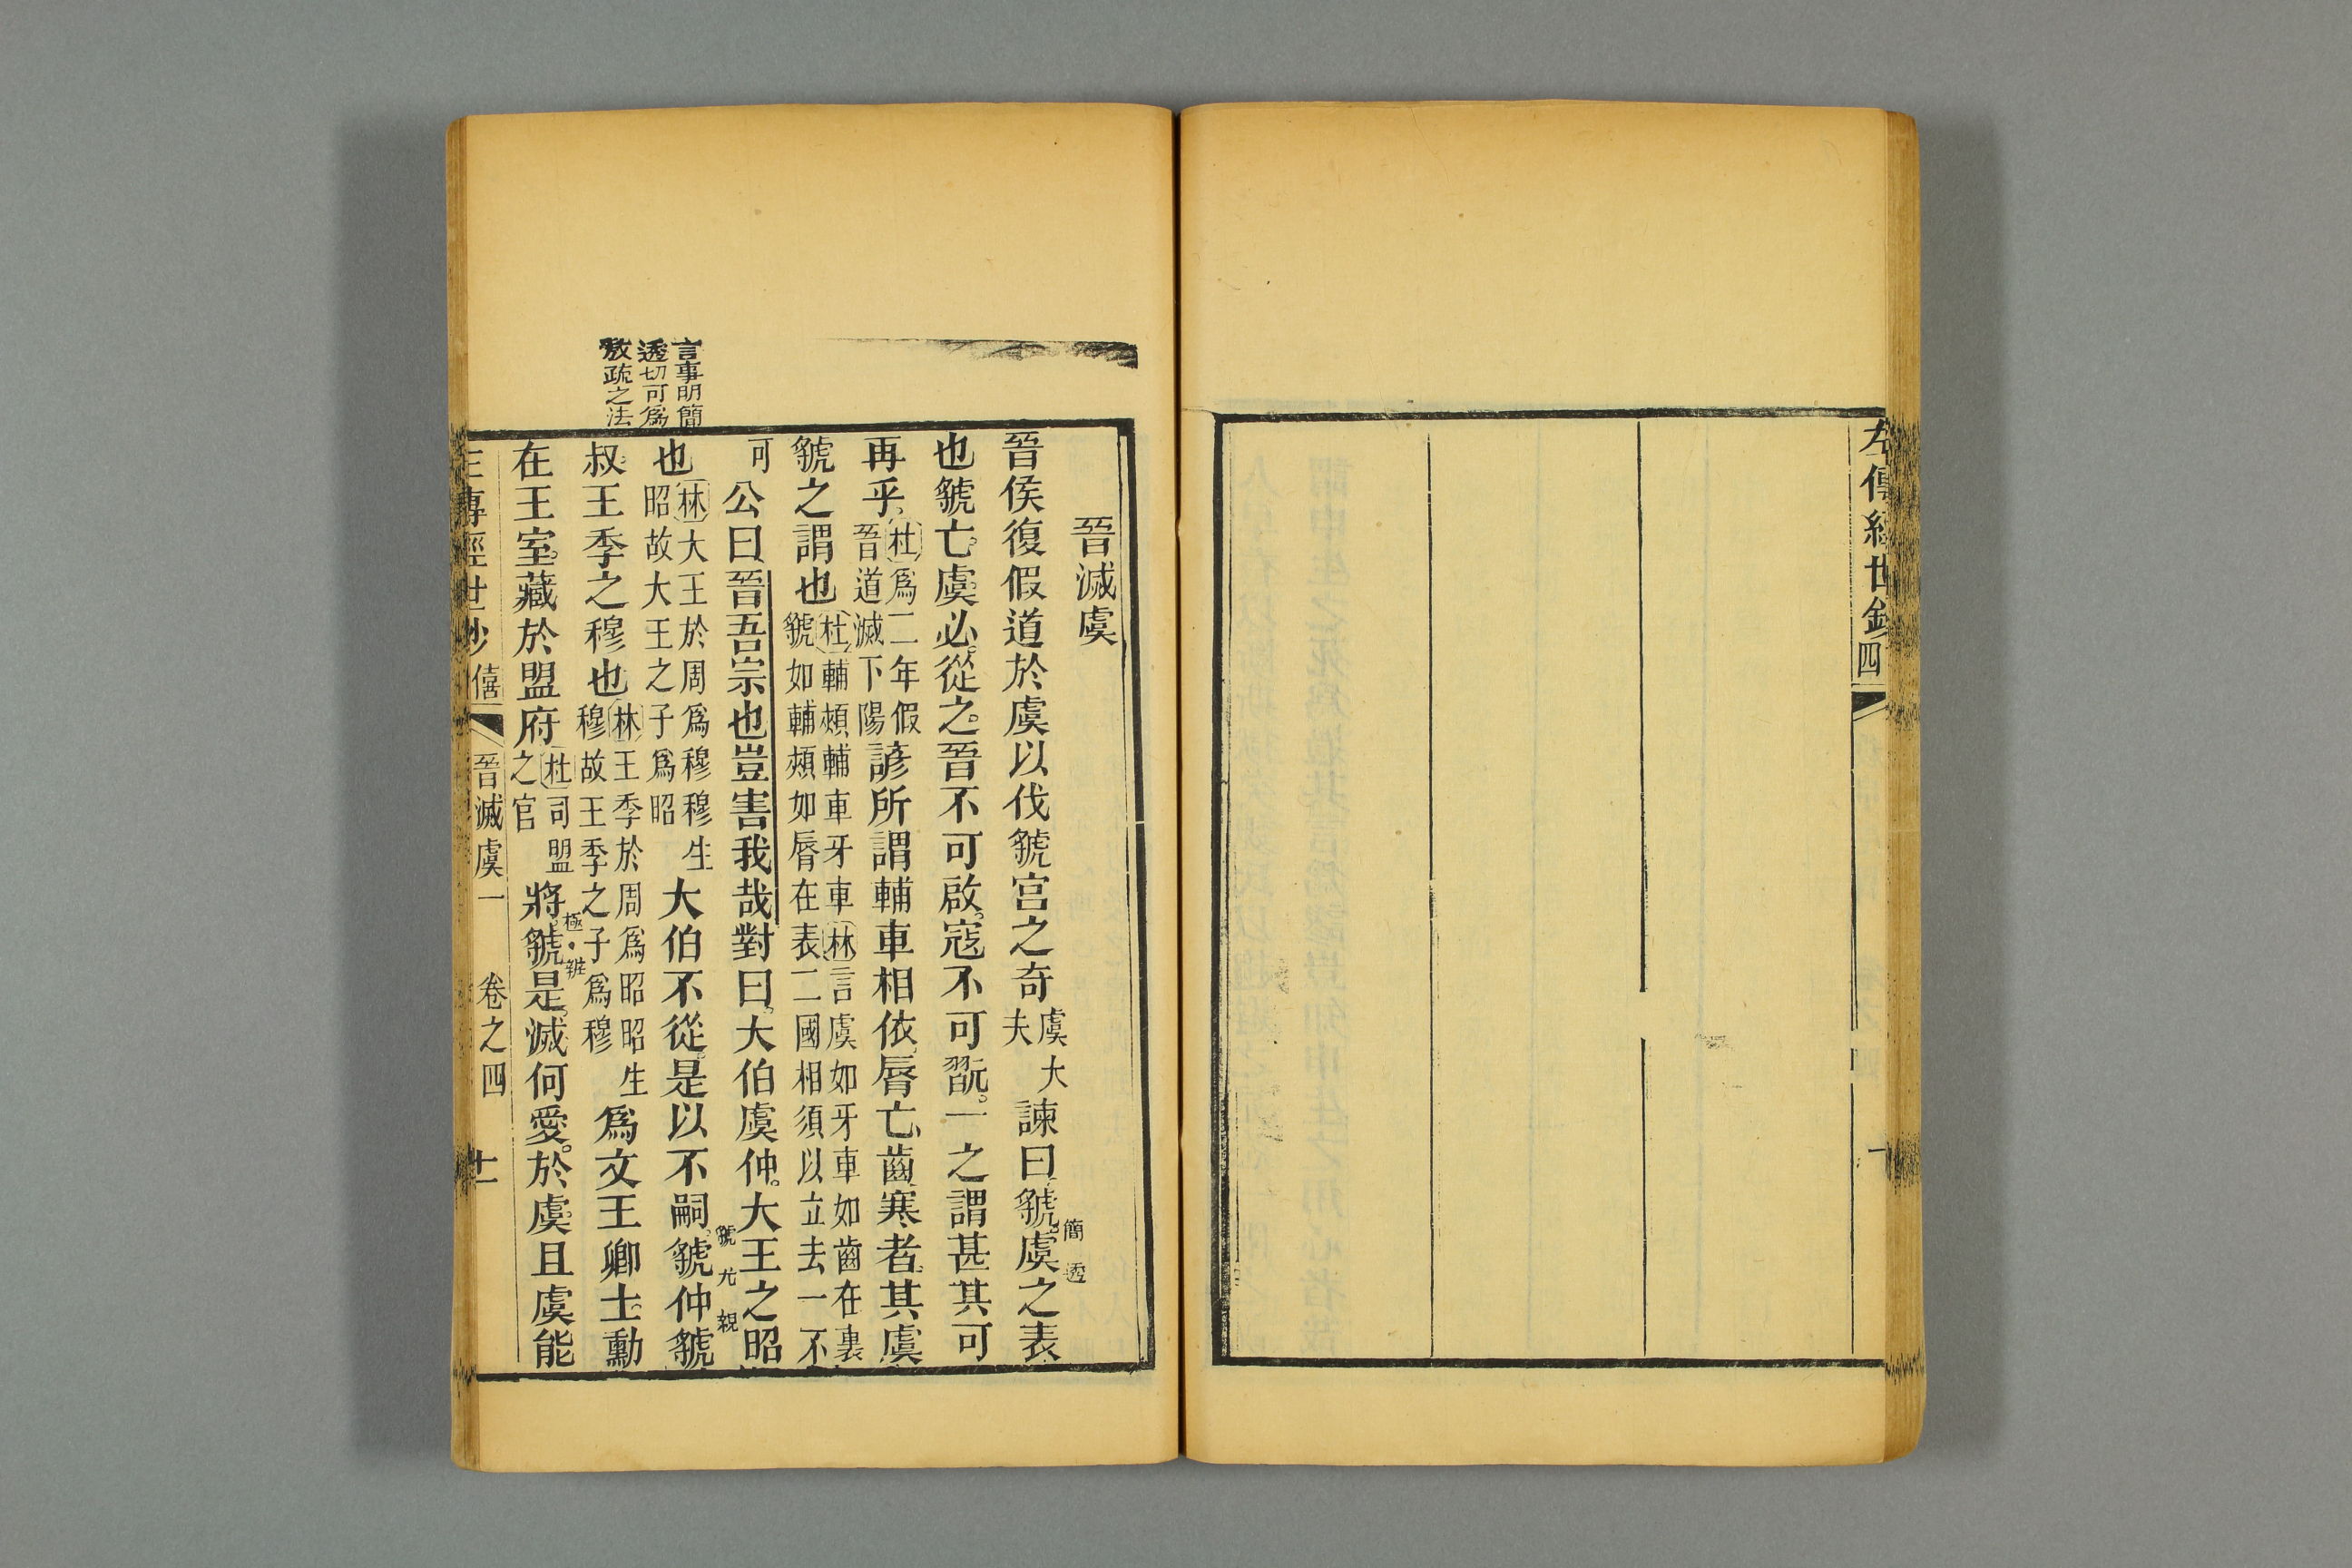 左傳經世鈔
四
言事明簡
透切可為
敷疏之法
晉滅虞
晉侯復假道於虞以伐虢宮之奇虞大夫諫曰虢虞之表
簡透
也虢亡虞必從之晉不可啟寇不可翫一之謂甚其可
再乎杜為二年假晉道滅下陽諺所謂輔車相依脣亡齒寒者其虞
虢之謂也杜輔頰輔車牙車林言虞如牙車如齒在裏虢如輔頰如脣在表二國相須以立去一不
可公曰晉吾宗也豈害我哉對曰大伯虞仲大王之昭
也林大王於周為穆穆生昭故大王之子為昭大伯不從是以不嗣虢仲虢
虢尤親
叔王季之穆也林王季於周為昭昭生穆故王季之子為穆為文王卿士勳
在王室藏於盟府杜司盟之官將虢是滅何愛於虞且虞能
極辨
傳經世鈔 僖 晉滅虞一 卷之四 十一